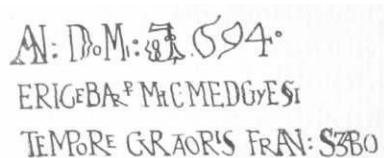 AN: DoMi: 1694.
ERIGEBAR MICMEDGYESI
TEMPORE CURAORIS FRAN: SZABO